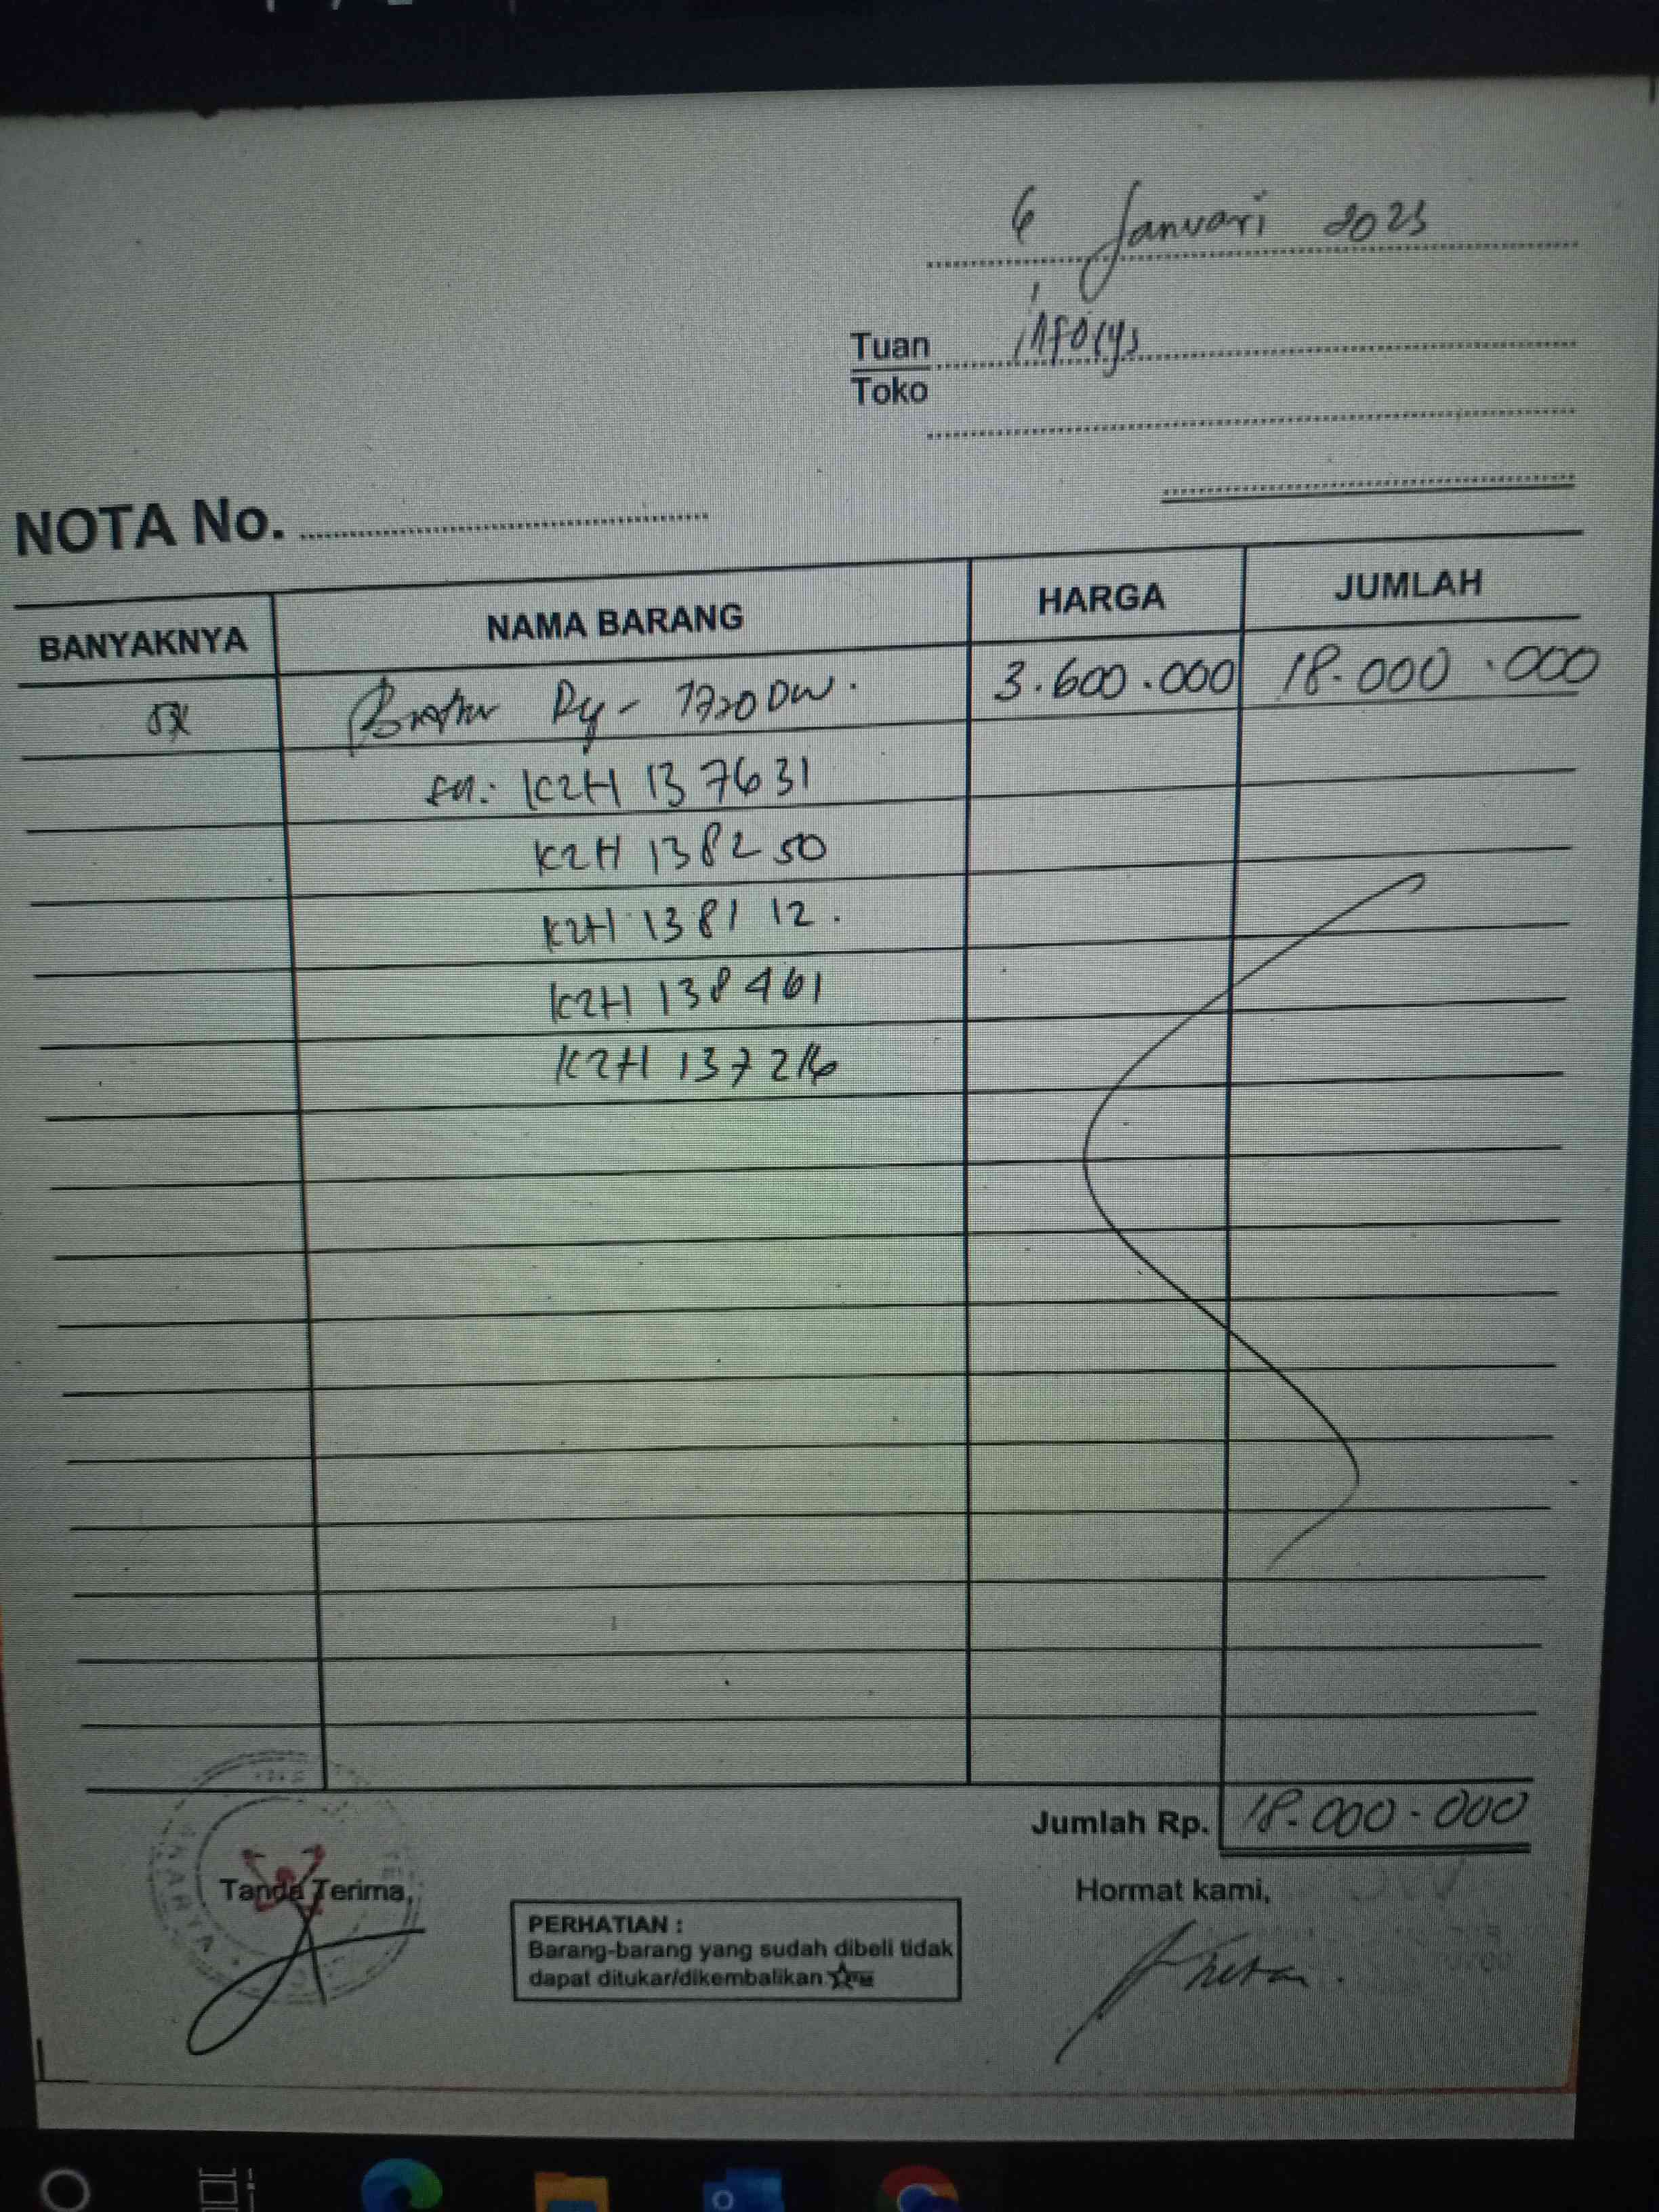 6 Januari 2023
Tuan infosys
Toko
NOTA No.
BANYAKNYA NAMA BARANG HARGA JUMLAH
5x Brother Dy - 1720 DW. 3.600.000 18.000.000
sn: K2H 137631
K2H 138250
K2H 138112.
K2H 138461
K2H 137216
Jumlah Rp. 18.000.000
Tanda Terima,
Hormat kami,
PERHATIAN :
Barang-barang yang sudah dibeli tidak
dapat ditukar/dikembalikan